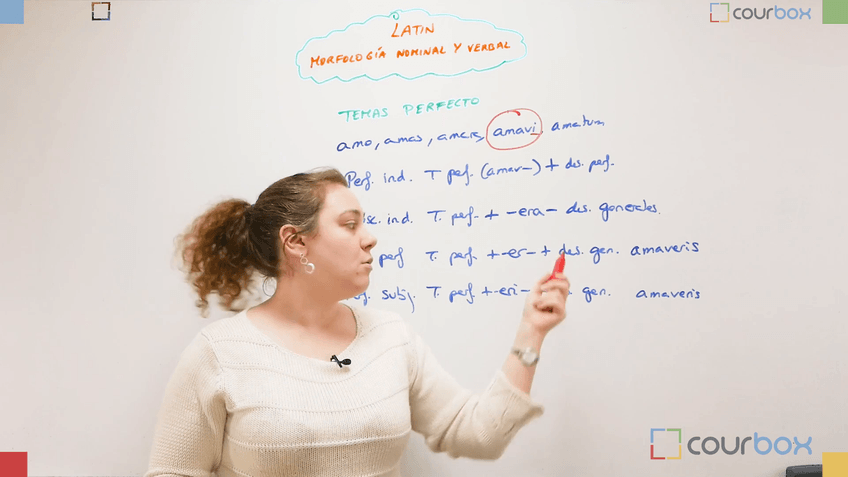 courbox
LATIN
MORFOLOGÍA NOMINAL Y VERBAL
TEMAS PERFECTO
amo, amas, amare, amavi, amatum
Perf. ind. T perf. (amav-) + des. perf.
sc. ind. T. perf. + -era- des. generales.
perf T. perf. + -er- + des. gen. amaveris
subj. T. perf + -eri- gen. amaveris
courbox